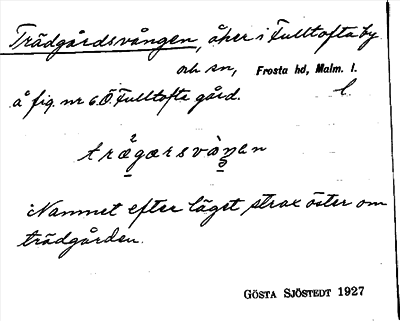 Trädgårdsvången, åker i Fulltofta by
och sn, Frosta hd, Malm. l.
å fig. nr 6 Ö. Fulltofta gård. l.
Namnet efter läget strax öster om
trädgården.
GÖSTA SJÖSTEDT 1927